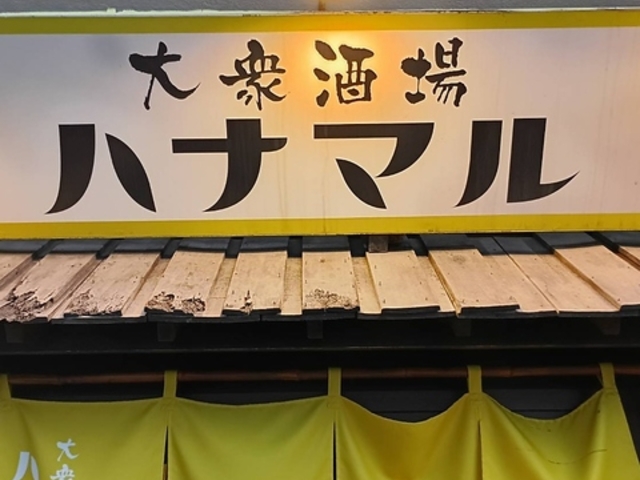 大衆酒場
ハナマル
大衆
ハ